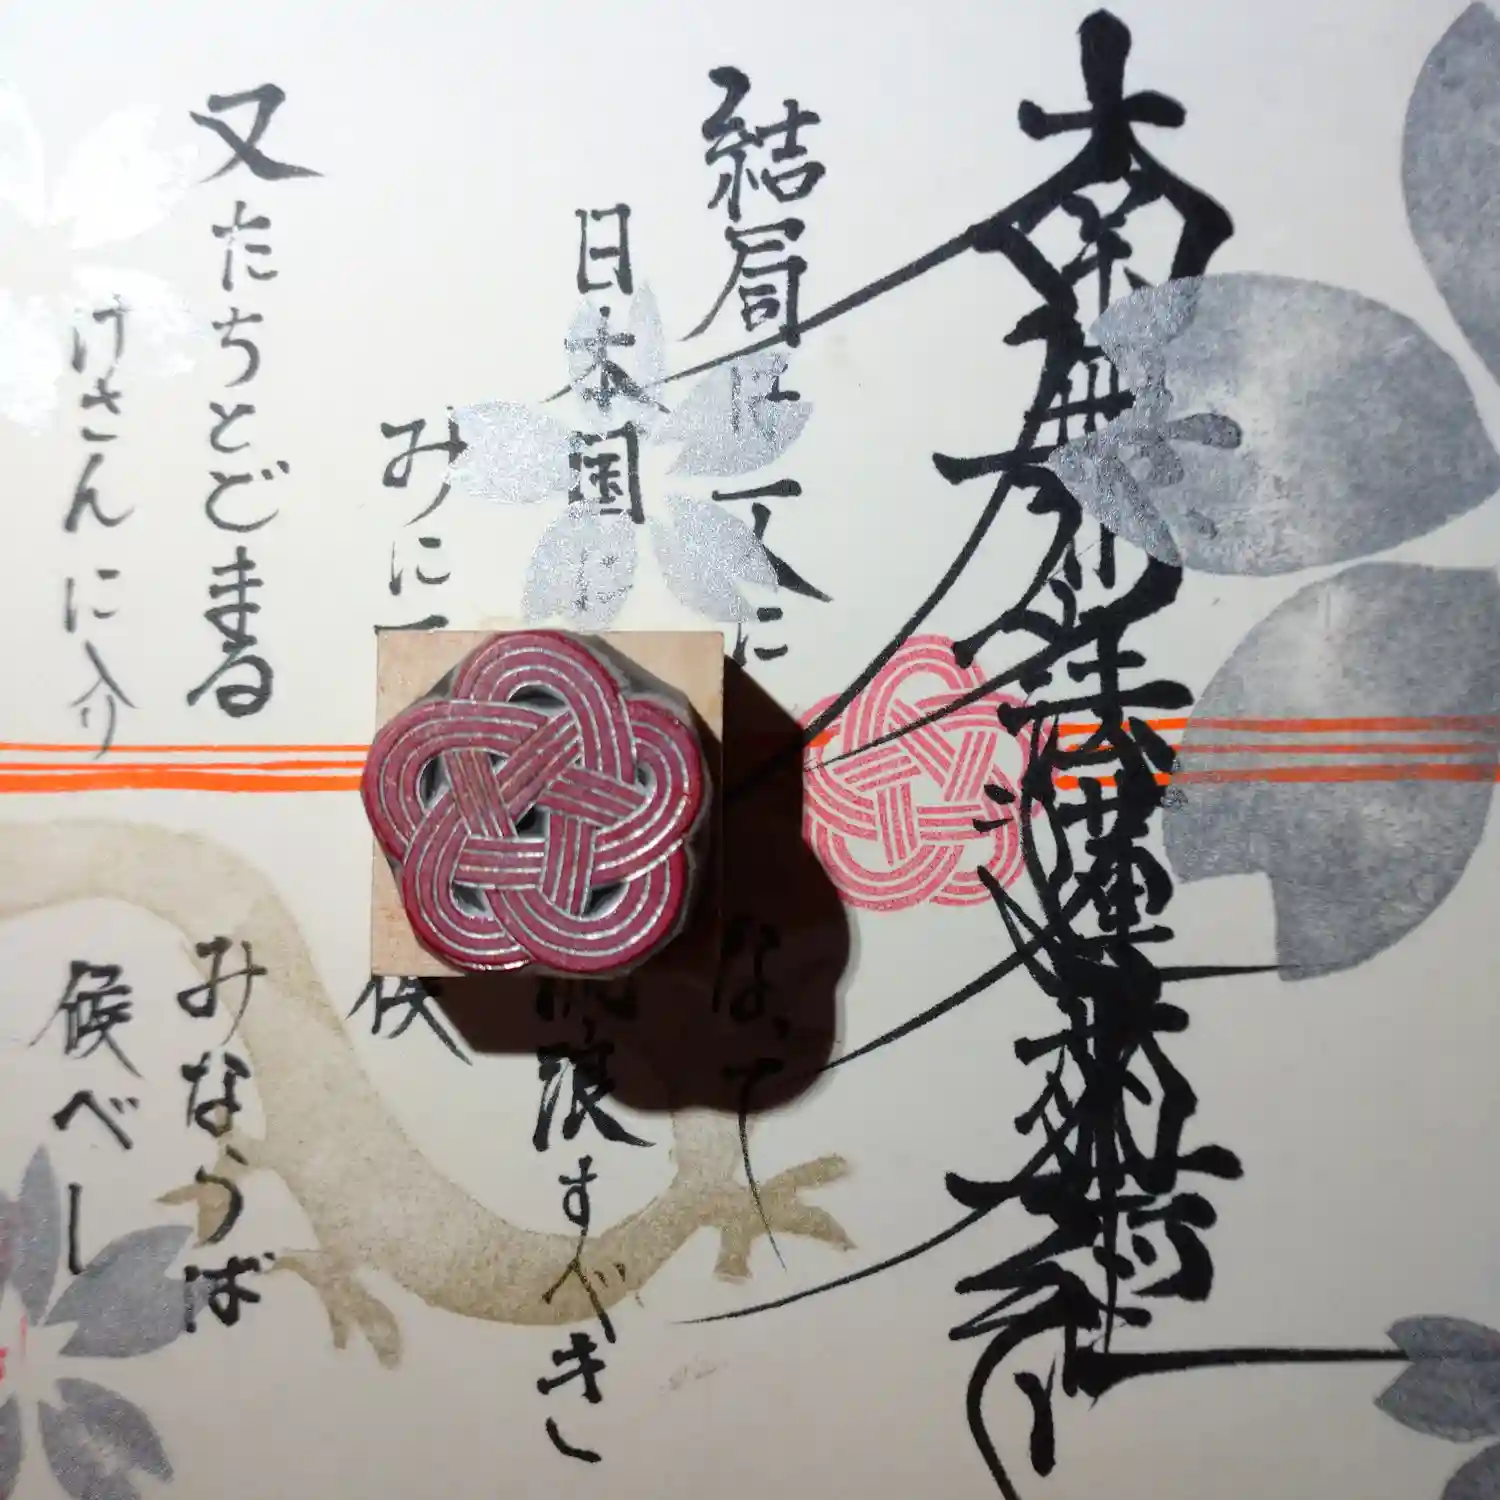 南無妙法蓮華経
結局は一人に なって
日本国に 渡すべき
みに 候
又たちとどまる みならば
けさんに入り 候べし